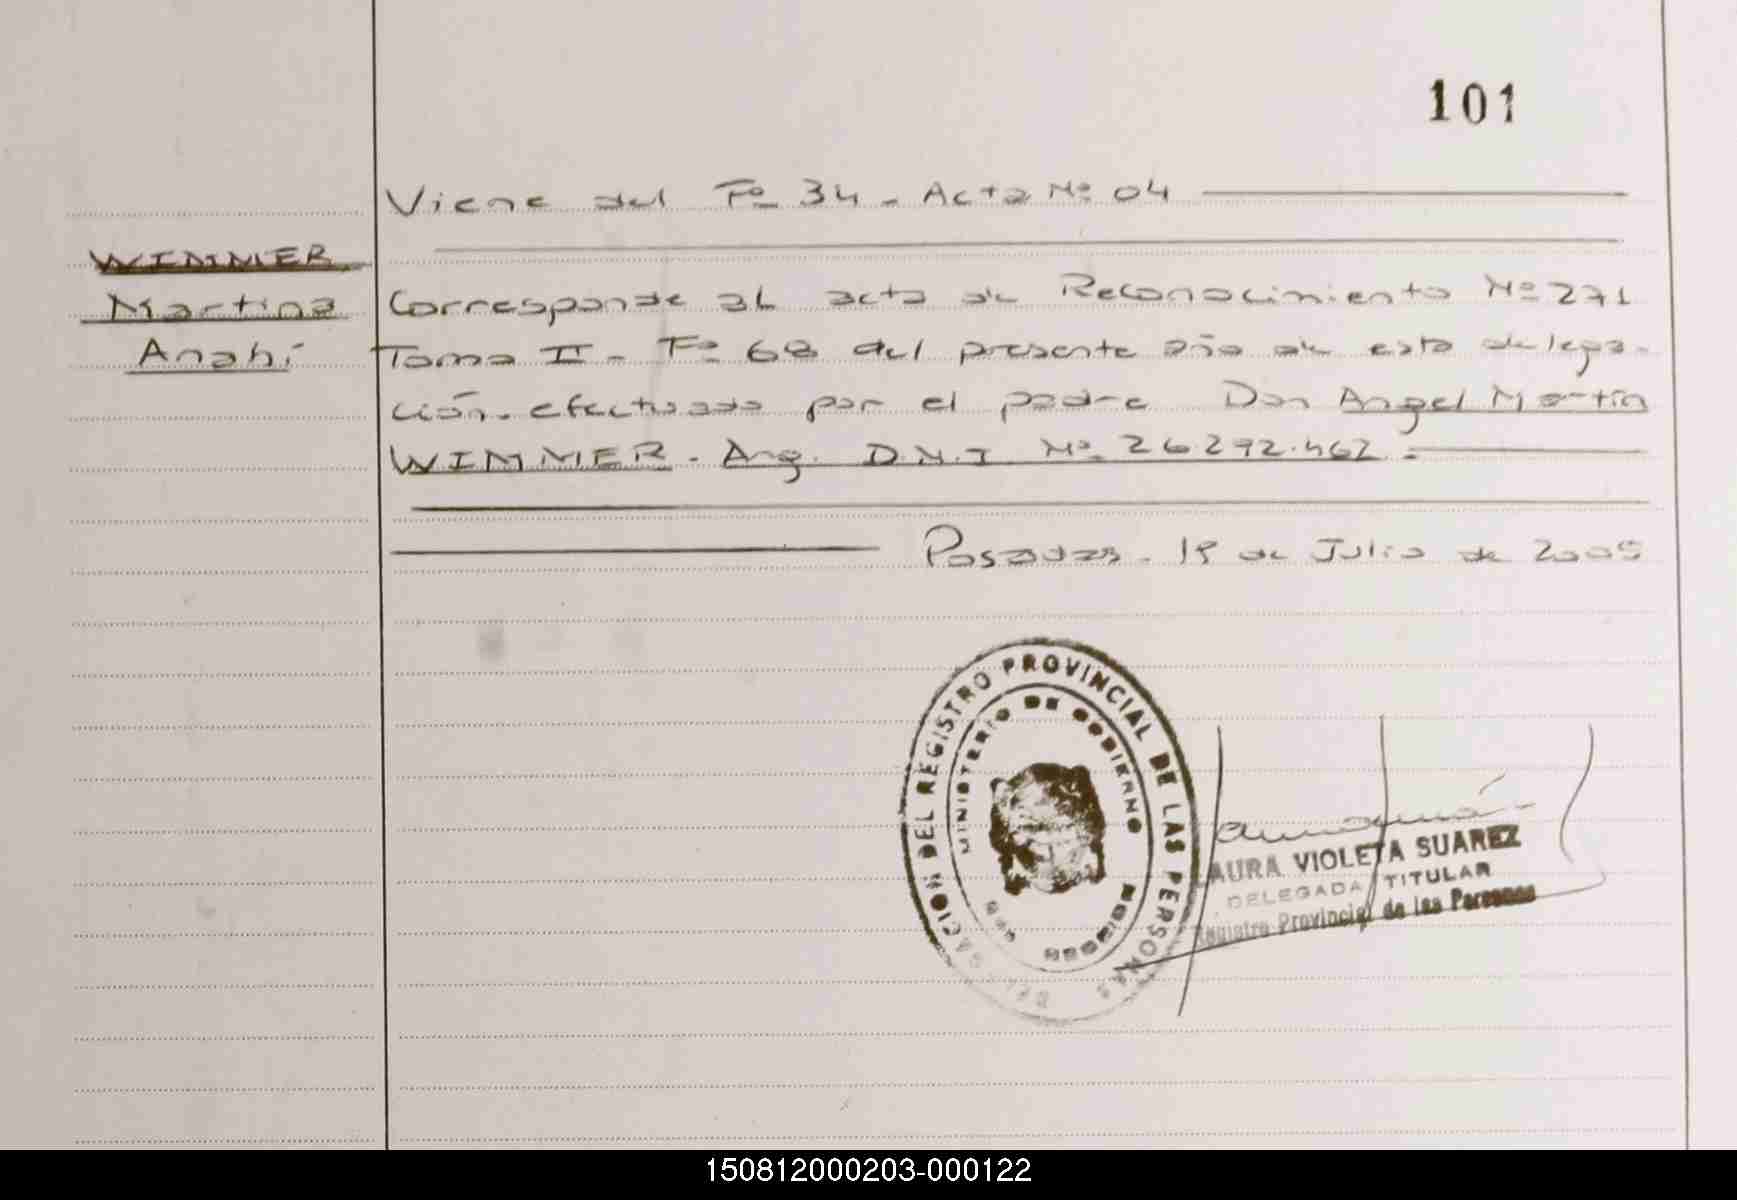 101
Viene del Fº 34 - Acta Nº 04
WIMMER
Martina
Anahí
Corresponde al acta de Reconocimiento Nº 271
Tomo II - Fº 68 del presente año de esta delega-
ción. efectuado por el padre Don Angel Martín
WIMMER - Arg. D.N.I Nº 26.292.462 =
Posadas - 19 de Julio de 2005
DELEGACION DEL REGISTRO PROVINCIAL DE LAS PERSONAS
MINISTERIO DE GOBIERNO
LAURA VIOLETA SUAREZ
DELEGADA TITULAR
Registro Provincial de las Personas
150812000203-000122